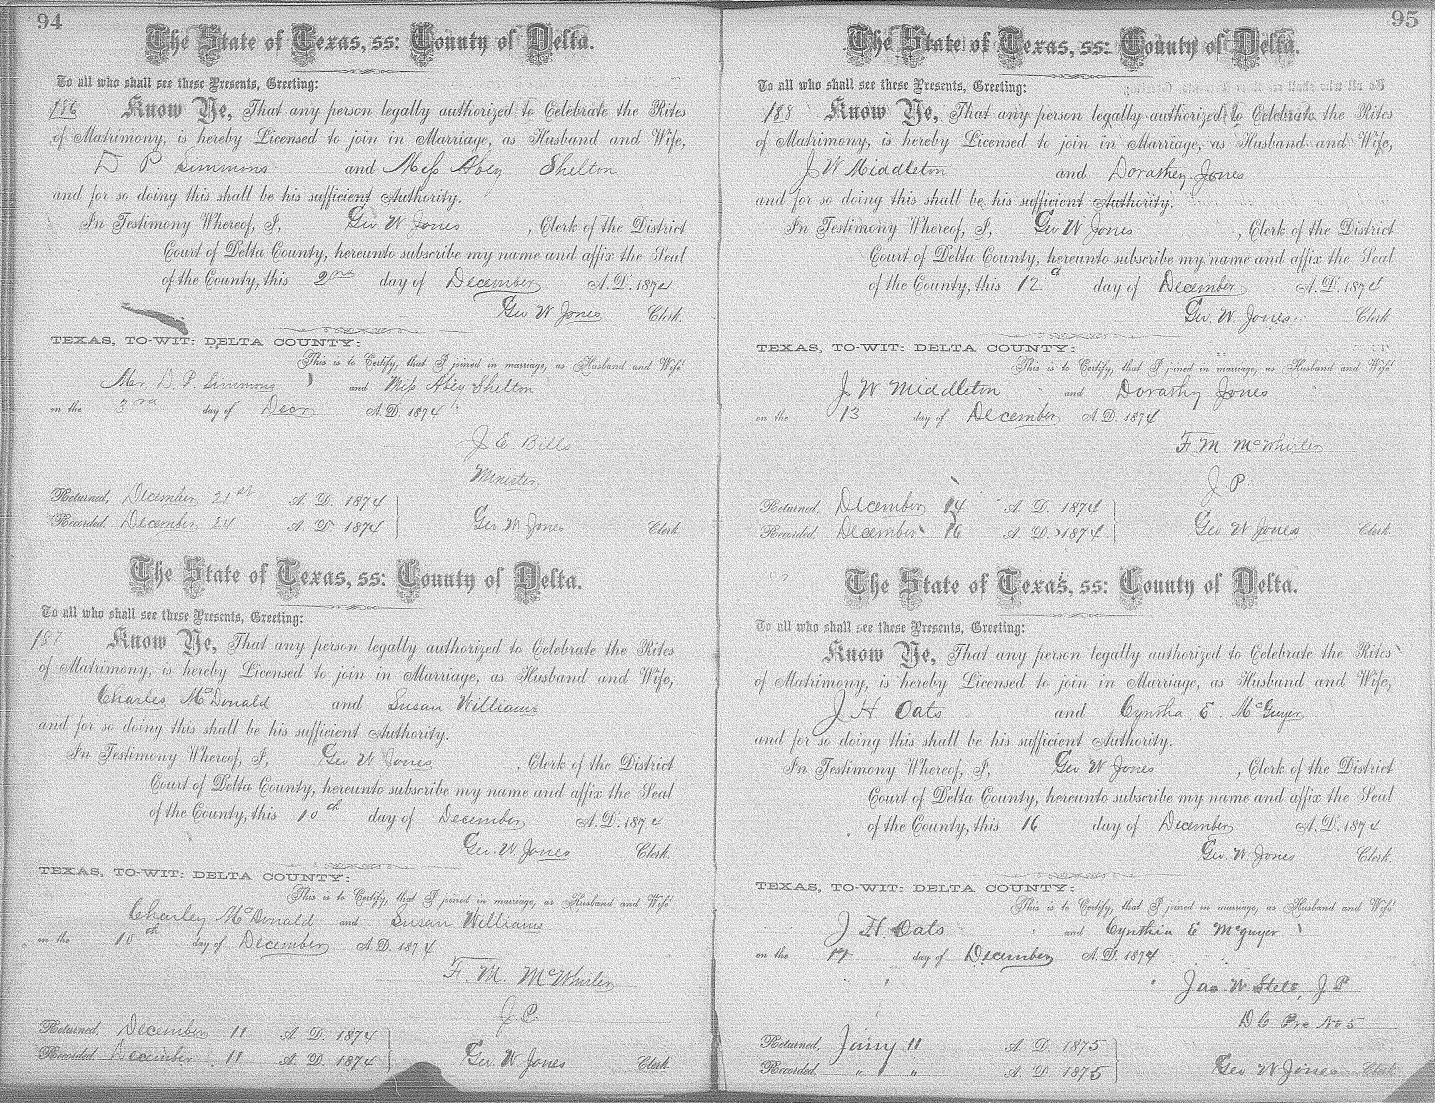 94
The State of Texas, ss: County of Delta.
To all who shall see these Presents, Greeting:
186 Know Ye, That any person legally authorized to Celebrate the Rites
of Matrimony, is hereby Licensed to join in Marriage, as Husband and Wife,
D P Simmons and Miss Abley Shelton
and for so doing this shall be his sufficient Authority.
In Testimony Whereof, I, Geo W Jones, Clerk of the District
Court of Delta County, hereunto subscribe my name and affix the Seal
of the County, this 2nd day of December A.D. 1874
Geo W Jones Clerk.
TEXAS, TO-WIT: DELTA COUNTY:
This is to Certify, that I joined in marriage, as Husband and Wife
Mr. D. P. Simmons and Miss Abley Shelton
on the 3rd day of Decr A.D. 1874
J E Bills
Minister
Returned, December 21st A. D. 1874
Recorded, December 24 A. D. 1874 Geo W Jones Clerk.
The State of Texas, ss: County of Delta.
To all who shall see these Presents, Greeting:
187 Know Ye, That any person legally authorized to Celebrate the Rites
of Matrimony, is hereby Licensed to join in Marriage, as Husband and Wife,
Charles McDonald and Susan Williams
and for so doing this shall be his sufficient Authority.
In Testimony Whereof, I, Geo W Jones, Clerk of the District
Court of Delta County, hereunto subscribe my name and affix the Seal
of the County, this 10th day of December A.D. 1874
Geo. W. Jones Clerk.
TEXAS, TO-WIT: DELTA COUNTY:
This is to Certify, that I joined in marriage, as Husband and Wife
Charley McDonald and Susan Williams
on the 10th day of December A.D. 1874
F. M. McWhirter
J P.
Returned, December 11 A. D. 1874
Recorded, December 11 A. D. 1874 Geo. W Jones Clerk.
95
The State of Texas, ss: County of Delta.
To all who shall see these Presents, Greeting:
188 Know Ye, That any person legally authorized to Celebrate the Rites
of Matrimony, is hereby Licensed to join in Marriage, as Husband and Wife,
J W Middleton and Dorathey Jones
and for so doing this shall be his sufficient Authority.
In Testimony Whereof, I, Geo W Jones, Clerk of the District
Court of Delta County, hereunto subscribe my name and affix the Seal
of the County, this 12 d day of December A.D. 1874
Geo. W. Jones. Clerk
TEXAS, TO-WIT: DELTA COUNTY:
This is to Certify, that I joined in marriage, as Husband and Wife
J W Middleton and Dorathy Jones
on the 13 day of December A.D. 1874
F. M McWhirter
J P.
Returned, December 14 A. D. 1874
Recorded, December 16 A. D. 1874 Geo W Jones Clerk.
The State of Texas, ss: County of Delta.
To all who shall see these Presents, Greeting:
Know Ye, That any person legally authorized to Celebrate the Rites
of Matrimony, is hereby Licensed to join in Marriage, as Husband and Wife,
J H Oats and Cyntha E. McGuyer
and for so doing this shall be his sufficient Authority.
In Testimony Whereof, I, Geo W Jones, Clerk of the District
Court of Delta County, hereunto subscribe my name and affix the Seal
of the County, this 16 day of December A.D. 1874
Geo. W. Jones Clerk.
TEXAS, TO-WIT: DELTA COUNTY:
This is to Certify, that I joined in marriage, as Husband and Wife
J H. Oats and Cynthia E Mcguyer
on the 17 day of December A.D. 1874
Jas W. J P
D C Pre No 5
Returned, Jany 11 A. D. 1875
Recorded, " " A. D. 1875 Geo W Jones Clerk